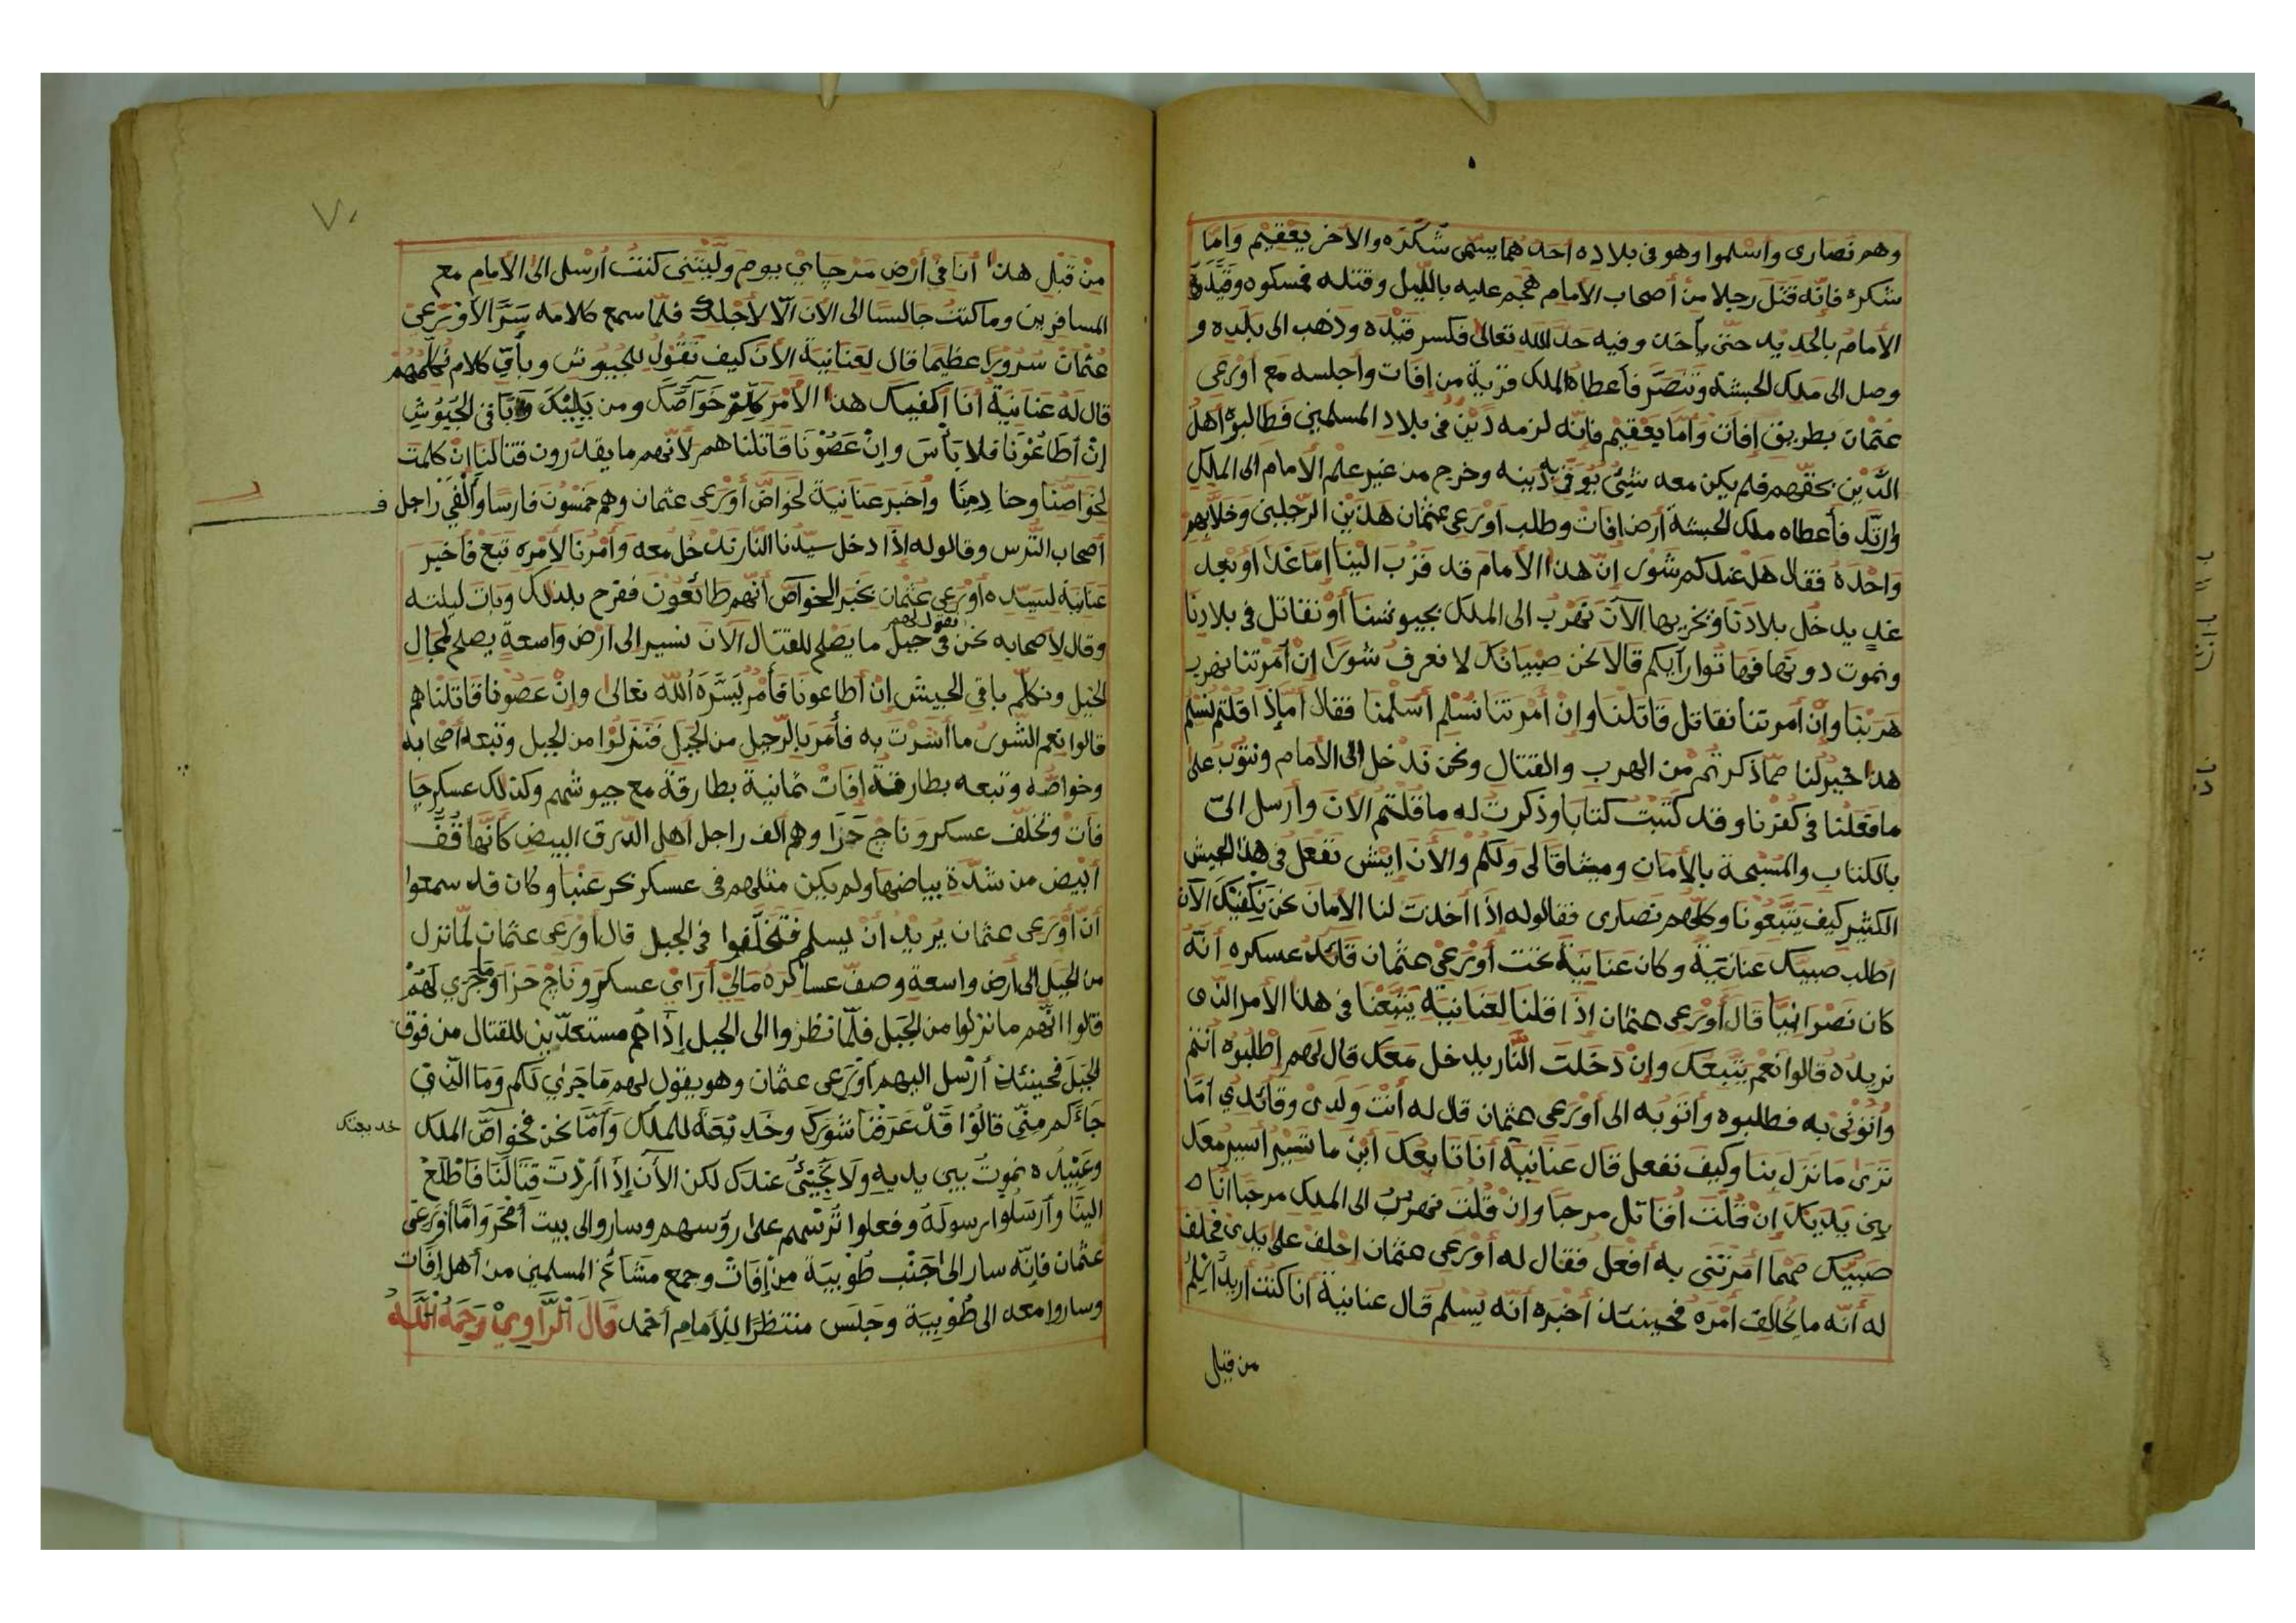 وهم نصارى وأسلموا وهو فى بلاده احدهما يسمى شكره والآخر يعقيم وأمّا
شكره فإنّه قتل رجلا من أصحاب الامام هجم عليه بالليل وقتله فمسكوه وقيّده
الأمام بالحديد حتى يأخذ وفيه حدّ الله تعالى فكسر قيده وذهب الى بلده و
وصل الى ملك الحبشة وتنصّر فأعطاه الملك قرية من إفات وأجلسه مع أورعى
عثمان بطريق إفات وأما يعقيم فإنّه لزمه دَيْنٌ فى بلاد المسلمين فطالبوه أهل
الدَّين بحقّهم فلم يكن معه شيئ يوفى به دينه وخرج من غير علم الأمام الى الملك
وارتدّ فأعطاه ملك الحبشة أرض إفات وطلب أورعى عثمان هذين الرّجلين وخلا بهم
واحدة فقال هل عندكم شور إنّ هذا الأمام قد قرُب الينا إمّا غدا أو بعد
غدٍ يدخل بلادنا ويخربها الآن نهرب الى الملك بجيوشنا أو نقاتل فى بلادنا
ونموت دونها فهاتوا رأيكم قالا نحن صبيانك لا نعرف شورا إن أمرتنا نهرب
هربنا وإن أمرتنا نقاتل قاتلنا وإن أمرتنا نسلم أسلمنا فقال أما إذا قلتم نسلم
هذا خير لنا ممّا ذكرتم من الهرب والقتال ونحن ندخل الى الأمام ونتوب على
ما فعلنا فى كفرنا وقد كتبت كتابا وذكرت له ما قلتم الآن وأرسل الىّ
بالكتاب والمسبحة بالأمان وميثاقا لى ولكم والآن إيش نفعل فى هذا الجيش
الكثير كيف يتبعونا وكلّهم نصارى فقالو له إذا أخذت لنا الأمان نحن نكفيك الآن
اطلب صبيك عنانية وكان عنانية تحت أورعى عثمان قائد عسكره أنّه
كان نصرانيّا قال أورعى عثمان اذا قلنا لعنانية يتبعنا فى هذا الأمر الذى
نريده قالوا نعم يتبعك وإن دخلت النّار يدخل معك قال لهم إطلبوه أنتم
وأتونى به فطلبوه وأتو به الى أورعى عثمان قال له أنت ولدى وقائدى أمّا
ترى ما نزل بنا وكيف نفعل قال عنانية أنا تابعك أين ما تسير أسير معك
بين يديك إن قلت أقاتل مرحبا وإن قلت نهرب الى الملك مرحبا أنا
صبيّك مهما أمرتنى به أفعل فقال له أورعى عثمان احلف على يدى فحلف
له أنّه ما يخالف أمره فحينئذ أخبره أنّه يسلم قال عنانية أنا كنت أريد أسلم
من قبل
٧٠
مِنْ قَبْلِ هذا أنا فى أرض مرجاى يوم وليتنى كنت أرسل الى الأمام مع
المسافرين وما كنت جالسا الى الآن الّا لأجلك فلمّا سمع كلامه سَرَّ الأورعى
عثمان سرورا عظيما قال لعنانية الآن كيف نقول للجيوش وبأىّ كلام نكلّمهم
قال له عنانية أنا أكفيك هذا الأمر كلّم خواصّك ومن يليك وباقى الجيوش
إن أطاعونا فلا بأس وإن عصونا قاتلناهم لأنّهم ما يقدرون قتالنا إن كلمت
لخواصّنا وأخبر عنانية لخواصّ أورعى عثمان وهم خمسون فارسا وألفى راجل
أصحاب التّرس وقالو له إذا دخل سيّدنا النّار ندخل معه وأمرنا لأمره تبع فأخبر
عنانية لسيده أورعى عثمان بخبر الخواصّ أنّهم طائعون ففرح بذلك وبات ليلته
نقول لهم
وقال لأصحابه نحن فى جبل ما يصلح للقتال الآن نسير الى أرض واسعة يصلح لمجال
الخيل ونكلّم باقى الجيش إن أطاعونا فأمر يسّره الله تعالى وإن عصونا قاتلناهم
قالوا نعم الشّور ما أشرت به فأمر بالرّحيل من الجبل فنزلوا من الجبل وتبعه أصحابه
وخواصّه وتبعه بطارقة إفات ثمانية بطارقة مع جيوشهم وكذلك عسكر جبا
فات وتخلّف عسكر وناج جزا وهم ألف راجل أهل الدّرق البيض كأنّها قفّ
أبيض من شدّة بياضها ولم يكن مثلهم فى عسكر بحر عنبا وكان قد سمعوا
أنّ أورعى عثمان يريد أنْ يسلم فتخلّفوا فى الجبل قال أورعى عثمان لمّا نزل
من الجبل الى أرض واسعة وصفّ عساكره مالى أراى عسكر وناج جزا وما جرى لهم
قالوا انّهم ما نزلوا من الجبل فلمّا نظروا الى الجبل إذا هم مستعدّين للقتال من فوق
الجبل فحينئذ أرسل اليهم أورعى عثمان وهو يقول لهم ما جرى لكم وما الّذى
جاءكم منّى قالوا قد عرفنا شورك وخديعة للملك وأمّا نحن فخواصّ الملك
خديعتك
وعبيده نموت بين يديه ولا نجيئ عندك لكن الآن إذا أردت قتالنا فاطلع
الينا وأرسلوا رسوله وفعلوا ترسهم على رؤسهم وساروا الى بيت أمحر وأمّا أورعى
عثمان فإنّه سار الى جنب طوبية من إفات وجمع مشائخ المسلمين من أهل إفات
وساروا معه الى طوبية وجلس منتظرا للأمام أحمد قال الرّاوى رحمه الله